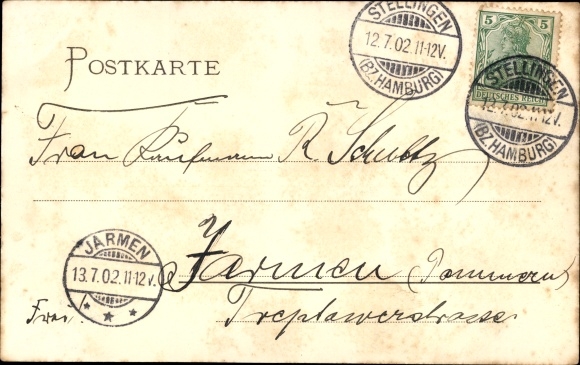 STELLINGEN
12.7.02.11-12V.
(BZ.HAMBURG)
5 5
DEUTSCHES REICH
STELLINGEN
12.7.02.11-12V.
(BZ.HAMBURG)
POSTKARTE
Frau Kaufmann R. Schultz
JARMEN
13.7.02.11-12V.
Jarmen (Pommern)
Frei!
Treptowerstrasse